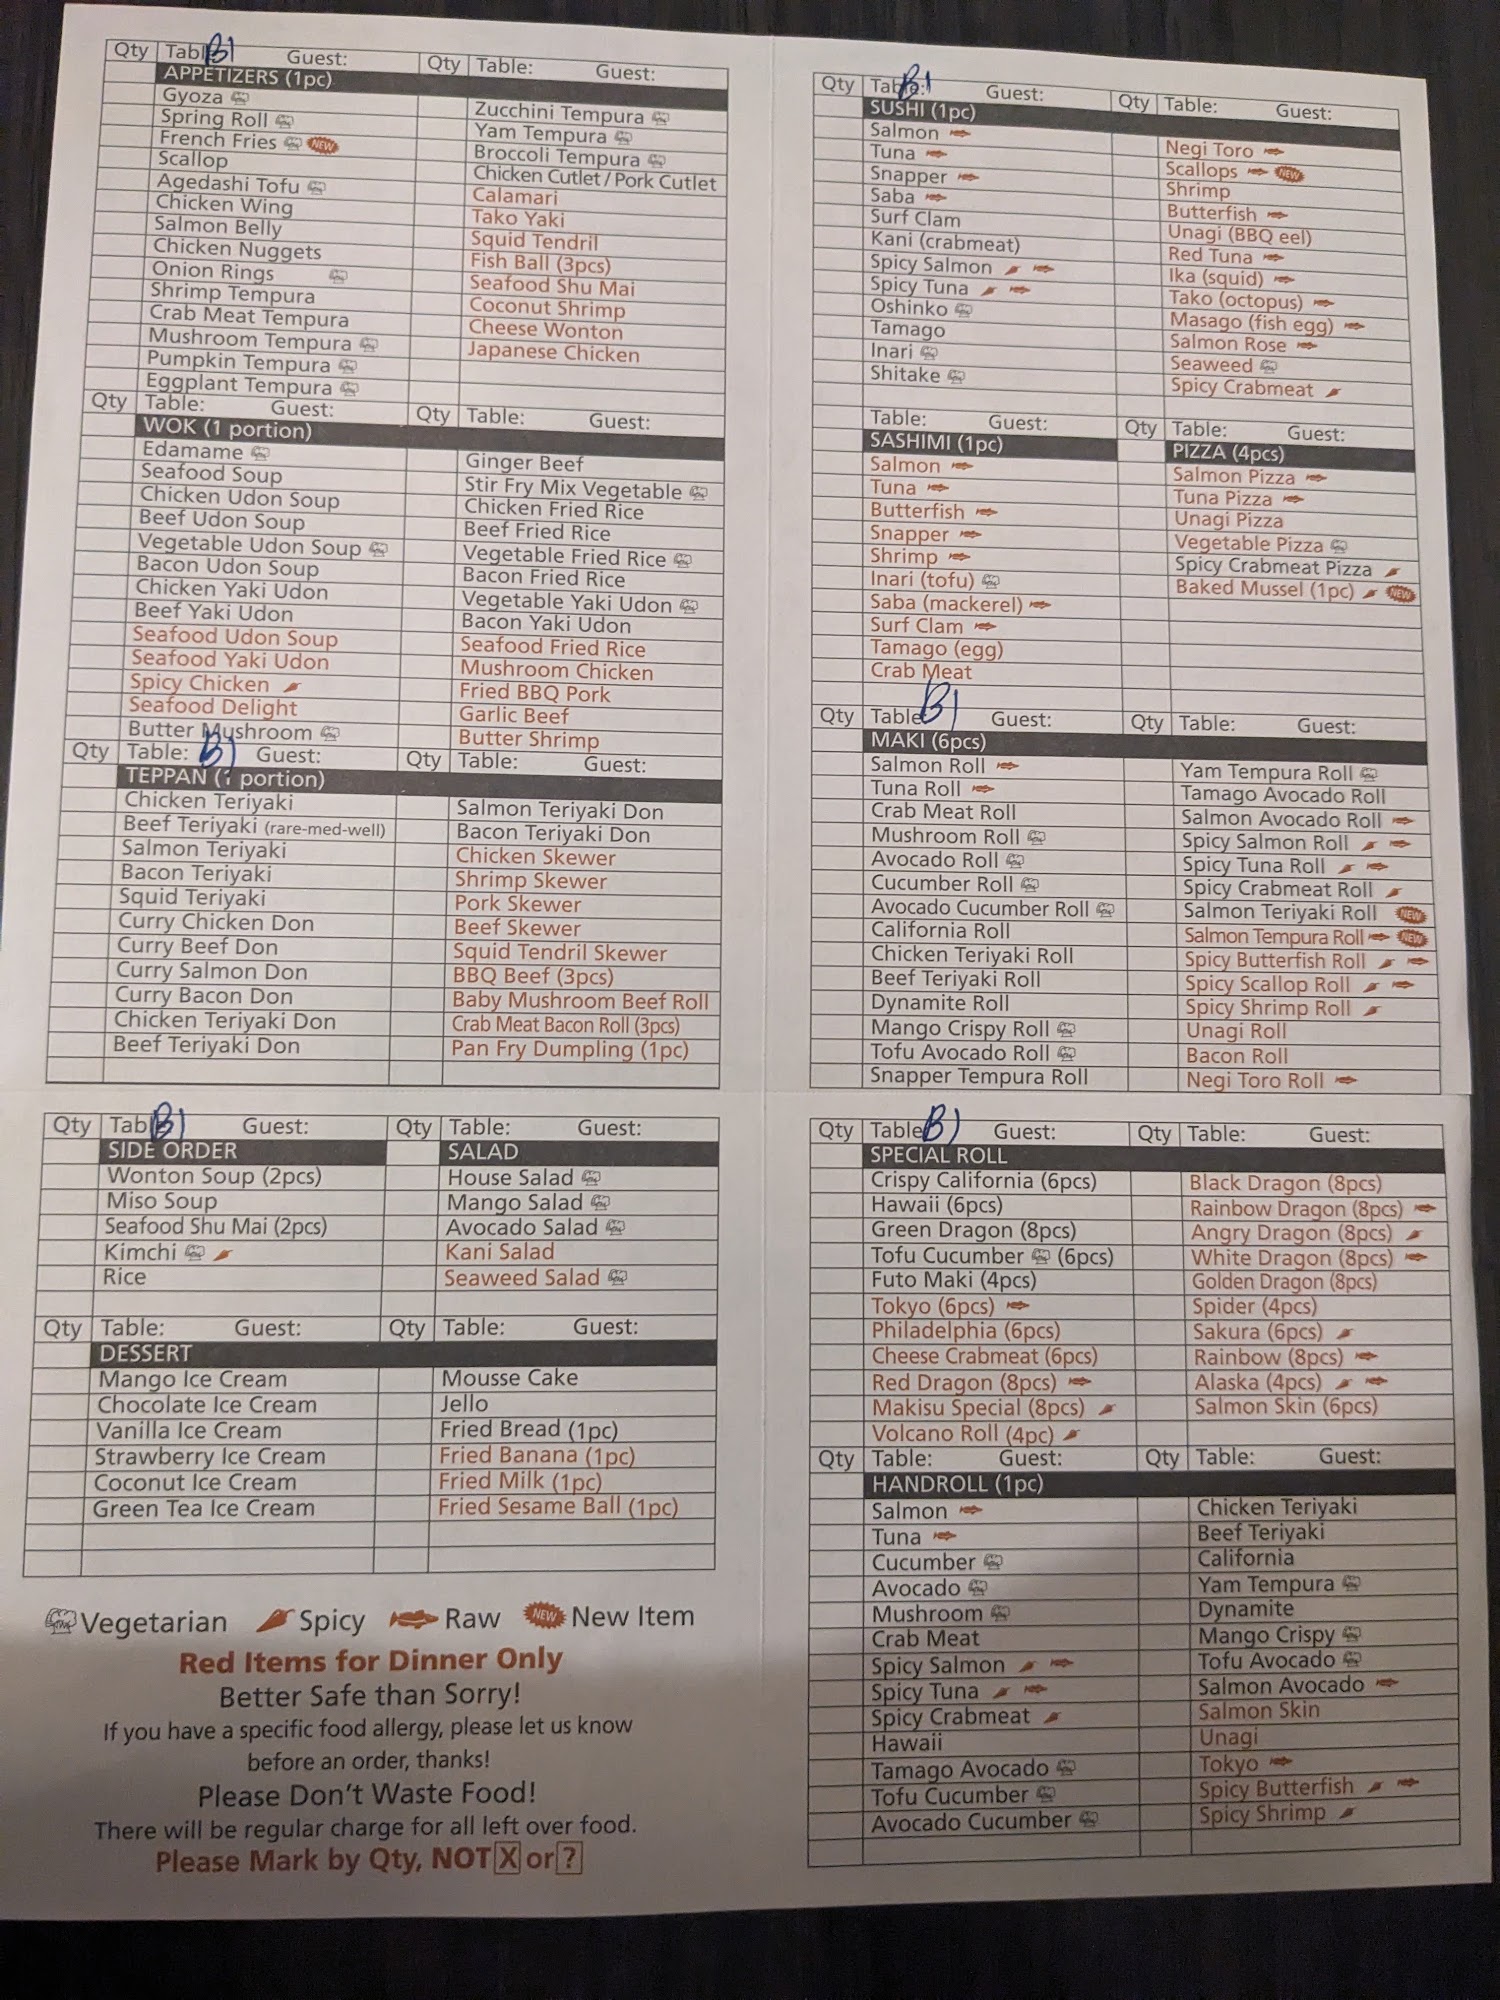 Qty Table: B1 Guest: Qty Table: Guest:
APPETIZERS (1pc)
Gyoza
Spring Roll
French Fries NEW
Scallop
Agedashi Tofu
Chicken Wing
Salmon Belly
Chicken Nuggets
Onion Rings
Shrimp Tempura
Crab Meat Tempura
Mushroom Tempura
Pumpkin Tempura
Eggplant Tempura
Zucchini Tempura
Yam Tempura
Broccoli Tempura
Chicken Cutlet / Pork Cutlet
Calamari
Tako Yaki
Squid Tendril
Fish Ball (3pcs)
Seafood Shu Mai
Coconut Shrimp
Cheese Wonton
Japanese Chicken
Qty Table: Guest: Qty Table: Guest:
WOK (1 portion)
Edamame
Seafood Soup
Chicken Udon Soup
Beef Udon Soup
Vegetable Udon Soup
Bacon Udon Soup
Chicken Yaki Udon
Beef Yaki Udon
Seafood Udon Soup
Seafood Yaki Udon
Spicy Chicken
Seafood Delight
Butter Mushroom
Ginger Beef
Stir Fry Mix Vegetable
Chicken Fried Rice
Beef Fried Rice
Vegetable Fried Rice
Bacon Fried Rice
Vegetable Yaki Udon
Bacon Yaki Udon
Seafood Fried Rice
Mushroom Chicken
Fried BBQ Pork
Garlic Beef
Butter Shrimp
Qty Table: B1 Guest: Qty Table: Guest:
TEPPAN (1 portion)
Chicken Teriyaki
Beef Teriyaki (rare-med-well)
Salmon Teriyaki
Bacon Teriyaki
Squid Teriyaki
Curry Chicken Don
Curry Beef Don
Curry Salmon Don
Curry Bacon Don
Chicken Teriyaki Don
Beef Teriyaki Don
Salmon Teriyaki Don
Bacon Teriyaki Don
Chicken Skewer
Shrimp Skewer
Pork Skewer
Beef Skewer
Squid Tendril Skewer
BBQ Beef (3pcs)
Baby Mushroom Beef Roll
Crab Meat Bacon Roll (3pcs)
Pan Fry Dumpling (1pc)
Qty Table: B1 Guest: Qty Table: Guest:
SUSHI (1pc)
Salmon
Tuna
Snapper
Saba
Surf Clam
Kani (crabmeat)
Spicy Salmon
Spicy Tuna
Oshinko
Tamago
Inari
Shitake
Negi Toro
Scallops NEW
Shrimp
Butterfish
Unagi (BBQ eel)
Red Tuna
Ika (squid)
Tako (octopus)
Masago (fish egg)
Salmon Rose
Seaweed
Spicy Crabmeat
Table: Guest: Qty Table: Guest:
SASHIMI (1pc)
Salmon
Tuna
Butterfish
Snapper
Shrimp
Inari (tofu)
Saba (mackerel)
Surf Clam
Tamago (egg)
Crab Meat
PIZZA (4pcs)
Salmon Pizza
Tuna Pizza
Unagi Pizza
Vegetable Pizza
Spicy Crabmeat Pizza
Baked Mussel (1pc) NEW
Qty Table B1 Guest: Qty Table: Guest:
MAKI (6pcs)
Salmon Roll
Tuna Roll
Crab Meat Roll
Mushroom Roll
Avocado Roll
Cucumber Roll
Avocado Cucumber Roll
California Roll
Chicken Teriyaki Roll
Beef Teriyaki Roll
Dynamite Roll
Mango Crispy Roll
Tofu Avocado Roll
Snapper Tempura Roll
Yam Tempura Roll
Tamago Avocado Roll
Salmon Avocado Roll
Spicy Salmon Roll
Spicy Tuna Roll
Spicy Crabmeat Roll
Salmon Teriyaki Roll NEW
Salmon Tempura Roll NEW
Spicy Butterfish Roll
Spicy Scallop Roll
Spicy Shrimp Roll
Unagi Roll
Bacon Roll
Negi Toro Roll
Qty Table B1 Guest: Qty Table: Guest:
SIDE ORDER
Wonton Soup (2pcs)
Miso Soup
Seafood Shu Mai (2pcs)
Kimchi
Rice
SALAD
House Salad
Mango Salad
Avocado Salad
Kani Salad
Seaweed Salad
Qty Table: Guest: Qty Table: Guest:
DESSERT
Mango Ice Cream
Chocolate Ice Cream
Vanilla Ice Cream
Strawberry Ice Cream
Coconut Ice Cream
Green Tea Ice Cream
Mousse Cake
Jello
Fried Bread (1pc)
Fried Banana (1pc)
Fried Milk (1pc)
Fried Sesame Ball (1pc)
Vegetarian Spicy Raw NEW New Item
Red Items for Dinner Only
Better Safe than Sorry!
If you have a specific food allergy, please let us know
before an order, thanks!
Please Don't Waste Food!
There will be regular charge for all left over food.
Please Mark by Qty, NOT X or ?
Qty Table B1 Guest: Qty Table: Guest:
SPECIAL ROLL
Crispy California (6pcs)
Hawaii (6pcs)
Green Dragon (8pcs)
Tofu Cucumber (6pcs)
Futo Maki (4pcs)
Tokyo (6pcs)
Philadelphia (6pcs)
Cheese Crabmeat (6pcs)
Red Dragon (8pcs)
Makisu Special (8pcs)
Volcano Roll (4pc)
Black Dragon (8pcs)
Rainbow Dragon (8pcs)
Angry Dragon (8pcs)
White Dragon (8pcs)
Golden Dragon (8pcs)
Spider (4pcs)
Sakura (6pcs)
Rainbow (8pcs)
Alaska (4pcs)
Salmon Skin (6pcs)
Qty Table: Guest: Qty Table: Guest:
HANDROLL (1pc)
Salmon
Tuna
Cucumber
Avocado
Mushroom
Crab Meat
Spicy Salmon
Spicy Tuna
Spicy Crabmeat
Hawaii
Tamago Avocado
Tofu Cucumber
Avocado Cucumber
Chicken Teriyaki
Beef Teriyaki
California
Yam Tempura
Dynamite
Mango Crispy
Tofu Avocado
Salmon Avocado
Salmon Skin
Unagi
Tokyo
Spicy Butterfish
Spicy Shrimp